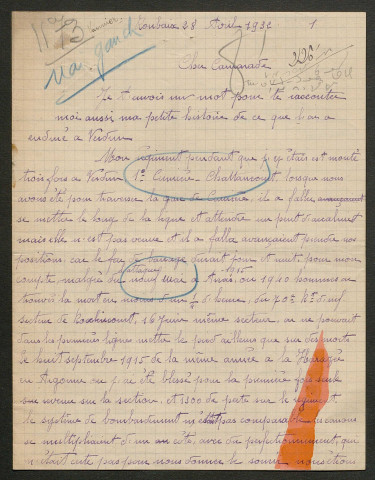 Roubaix 28 Août 1932 1
Cher Camarade
Je t'envois un mot pour te raconter
moi aussi ma petite histoire de ce que j'ai
enduré a Verdun
Mon régiment pendant que j'y étais est monté
trois fois a Verdun 1º Cumière Chattancourt, lorsque nous
avons été pour traverser la gare de Cumière, il a fallu
se mettre le long de la ligne et attendre un peut d'accalmie
mais elle n'est pas venue et il a fallu avancer prendre nos
positions, car le feu de barrage durait jour et nuit. pour mon
compte malgré attaque neuf Mai 1915 a Arras, ou 1940 hommes on
trouvé la mort en moins d'un ½ de heure, du 70me
secteur de Rocklincourt, 16 Juin même secteur, on ne pouvait
dans les premières lignes mettre le pied ailleurs que sur des morts
le huit septembre 1915 de la même année a la Harazée
en Argonne ou j'ai été blessé pour la première fois seul
sur la section, et 1500 de perte sur le régiment
le système de bombardement n'était pas comparable les canons
se multipliaient d'un côté, avec du perfectionnement, qui
n'était pas pour nous donner le sourire nous étions